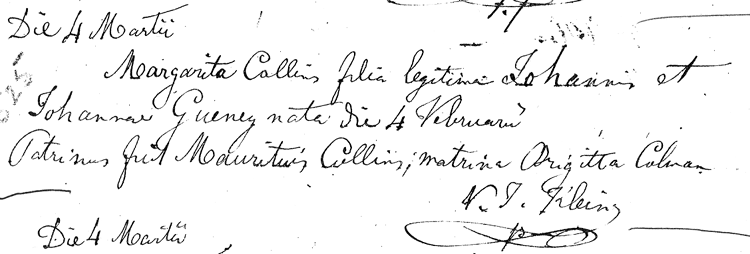 Die 4 Martii
Margarita Collins filia legitima Johannis et
Johannae Gueney nata die 4 Februarii
Patrinus fuit Mauritius Collins; matrina Brigitta Colman
N. T.
Die 4 Martii